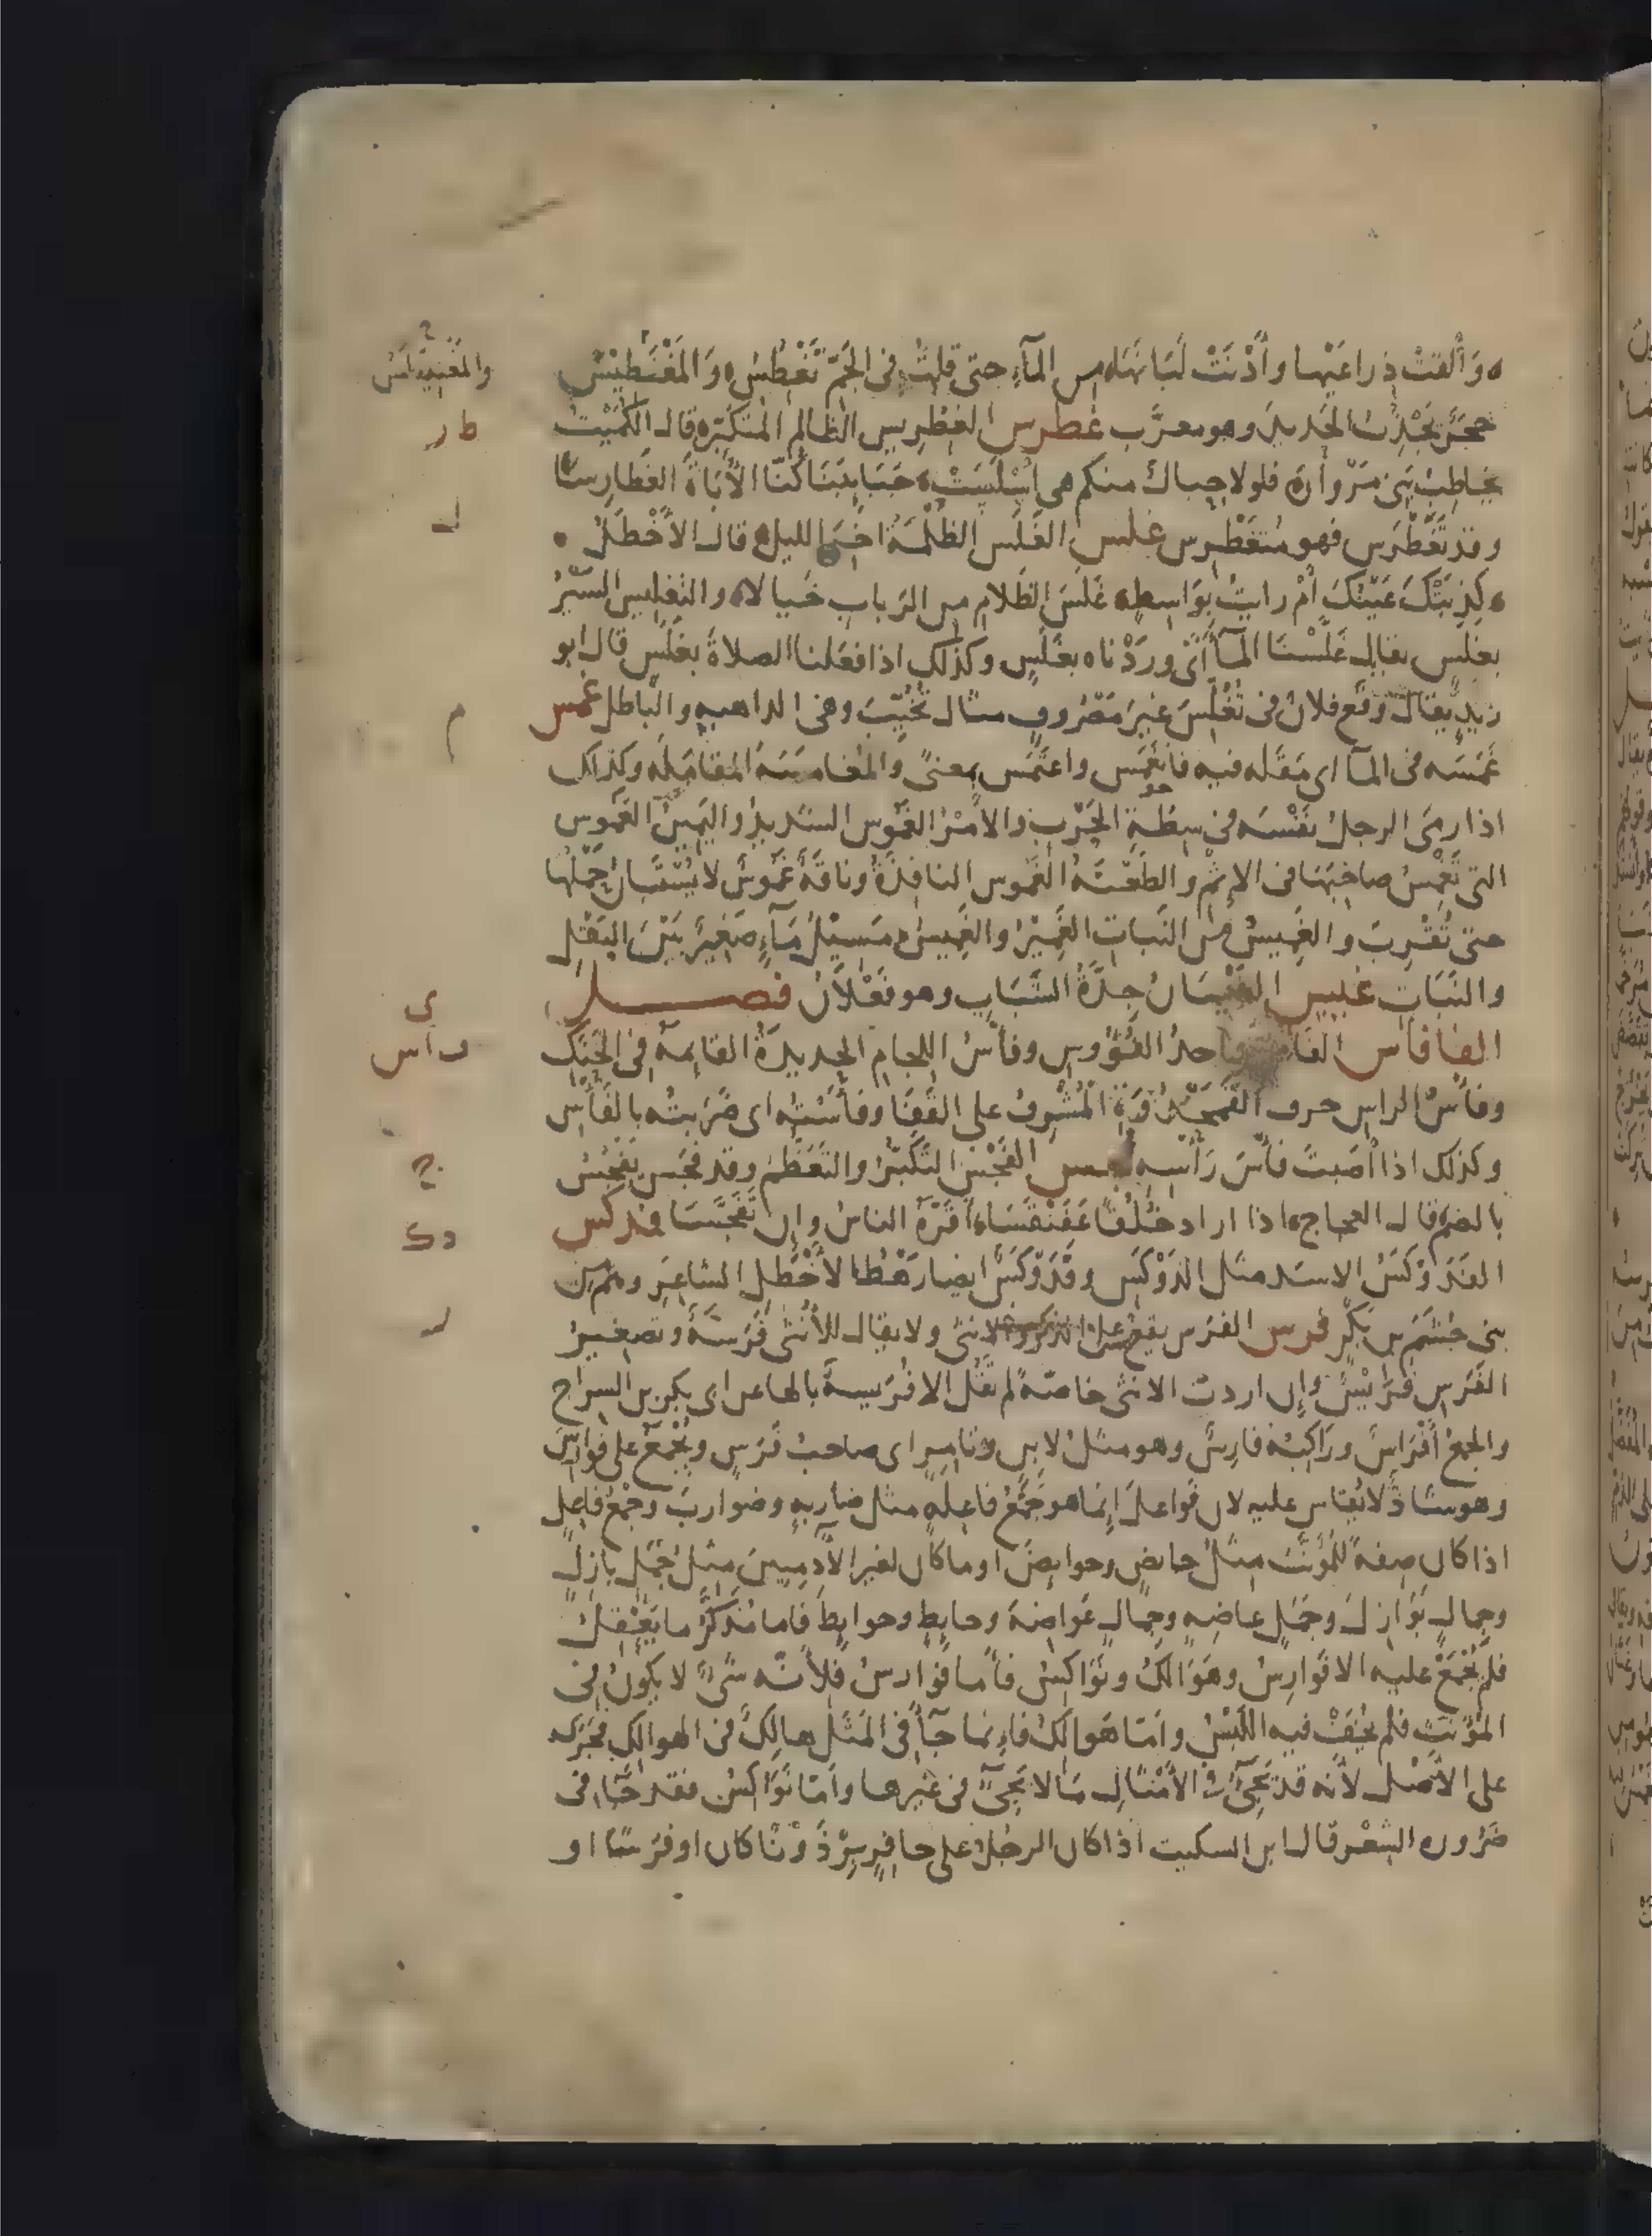 ه وَأَلْقَتْ ذِراعَيْها وأَدْنَتْ لَبَانَهَا ه من المآءِ حتى قلتُ في الجَمّ تَغْطِسُ ه وَالمَغْنَطِيْسُ
والمغنيطاس
حجَرٌ يَجْذِبُ الحَديدَ وهو معرَّب غطرس الغِطْرِيس الظالم المتكبّر ه قال الكُمَيْتُ
ط ر
يخاطِبُ بَنِى مَرْوانَ ه فلولا حِبالٌ منكم هى أَسْلَسَتْ ه جَنَائِبَنَا كُنّا الأُبَاةَ الغَطَارِسَا
وقد تَغَطْرَسَ فهو مُتَغَطْرِس غلس الغَلَس الظُلْمَةُ اخِرَ الليل ه قال الأَخْطَلُ ه
ل
ه كَذَبَتْكَ عَيْنُكَ أَمْ رايتَ بِوَاسِطٍ ه غَلَسَ الظَلامِ من الرَبابِ خَيالا ه والتَغْليس السَيْرُ
بغَلَسٍ يقال غَلَّسْنا المآءَ أَىْ ورَدْناه بغَلَسٍ وكذلك اذا فعَلنا الصلاةَ بغَلَسٍ قال ابو
زيدٍ يقال وَقَع فلانٌ فى تُغُلِّسَ غيرَ مَصْروفٍ مثال تُخُيِّبَ وهى الداهيه والباطل غمس
م
غَمَسَه فى المآ اى مَقَله فيه فانغَمَس واغتَمَس بمعنىً والمُغامَسَة المُقامَلة وكذلك
اذا رمَى الرجلُ بنَفْسه فى سِطَةِ الحَرْبِ والأمْرُ الغَمُوس الشديدُ واليَمِينُ الغَمُوس
التى تَغْمِسُ صاحِبَها فى الإثمِ والطَعْنَةُ الغَمُوس النافِذَةُ وناقَةٌ غَمُوسٌ لا يُسْتَبَانُ حَمْلُها
حتى تُقْرِبَ والغَمِيسُ من النَبات الغَمِيْرُ والغَمِيسُ مَسِيْلُ مَآءٍ صَغِيرٌ بَيْنَ البَقْلِ
والنَبَاتِ غيس الغَيْسَانُ حِدَّةُ الشَبَابِ وهو فَعْلَانُ فصل
ى
الفا فأس الفَأسُ واحدُ الفُؤُوسِ وفأسُ اللِجامِ الحديدَةُ القائمَةُ فى الحَنَكِ
ف أس
وفأسُ الراسِ حرف القَمَحْدُوَةِ المُشْرِفُ على القَفَا وفأَسْتُه اى ضَرَبتُه بالفَأْسِ
وكذلك اذا أصَبتَ فأسَ رَأسِهِ فجس الفَجْسُ التَكَبُّرُ والتَعَظُّمُ وقد فجَس يَفْجُسُ
ج
بالضمّ ه قال العجاج ه اذا اراد خُلُقًا عَفَنْقَسَا ه أَقَرَّهُ الناسُ وإن تَفَجَّسَا فدكس
دك
الفَدَوْكَسُ الاسَد مثل الدَوْكَس وفَدَوْكَسُ ايضا رَهْطُ الأَخْطَلِ الشاعِرِ وهم من
بنى جُشَمَ بن بَكْرٍ فرس الفرَس يقع على الذكر والانثى ولا يقال للأُنثى فَرَسَةٌ وتصغيرُ
ر
الفَرَسِ فُرَيْسٌ وإن اردتَ الانثى خاصّةً لم تَقُل الا فُرَيسةً بالها عن ابى بكر بن السراج
والجمعُ أَفْرَاسٌ ورَاكِبُه فارِسٌ وهو مثلُ لابِنٍ وتامِرٍ اى صاحبُ فَرَسٍ ويُجْمَعُ على فوارِسَ
وهو شاذٌ لا يُقاس عليه لان فَواعلَ إِنما هو جَمْعُ فاعِلَةٍ مثل ضاربةٍ وضواربَ وجَمْعُ فاعِلٍ
اذا كان صِفةً للمُؤَنَثِ مِثلُ حايضٍ وحوايضَ او ما كان لغير الآدمِيينَ مِثلُ جَمَلٍ بازِلٍ
وجمالٍ بَوَازِلَ وجَمَلٍ عاضِهٍ وجِمالٍ عَواضِهَ وحايطٍ وحوايِطَ فاما مُذَكَّرُ ما يَعْقِلُ
فلم يُجْمَعْ عليه الا فَوارِسُ وهَوَالكُ ونَوَاكِسُ فأما فَوارسُ فلأنّه شىْءٌ لا يكونُ فى
المؤَنَثِ فلم يُخَفْ فيه اللَبْسُ وامّا هَوالكُ فاءِنما جآَ فى المَثَل هالِكٌ فى الهوالك فجَرَى
على الأَصْل لأنه قد يَجِىءُ فى الأَمْثَالِ مَا لا يَجِىءُ فى غيْرِها وأمّا نَوَاكسُ فقد جَآ فى
ضَرُوره الشِعْر قال ابن السكيت اذا كان الرجُل على حافِرٍ بِرْذَوْنًا كان او فَرَسًا او